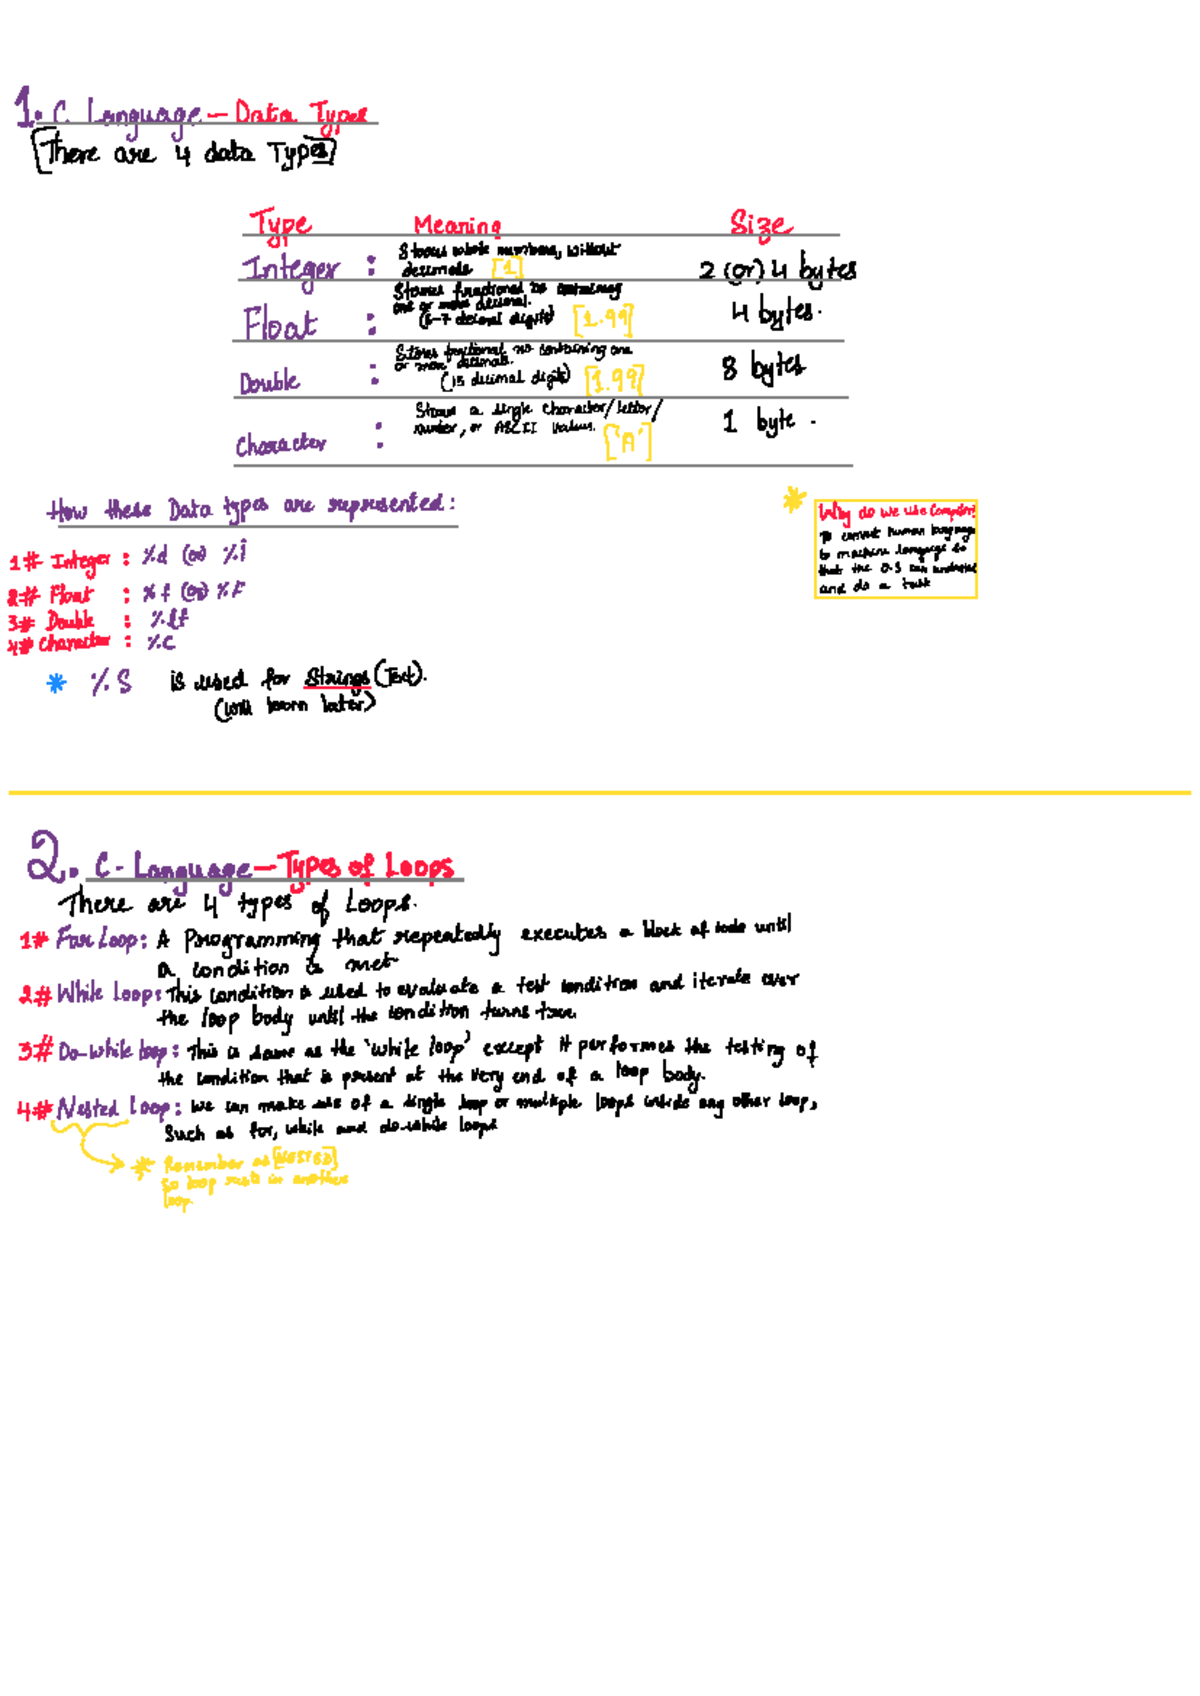 1. C Language – Data Types
[There are 4 data Types]
Type Meaning Size
Integer : Stores whole numbers, without
decimals [1] 2 (or) 4 bytes
Float : Stores fractional no containing
one or more decimal.
(6-7 decimal digits) [1.99] 4 bytes.
Double : Stores fractional no containing one
or more decimals.
(15 decimal digits) [1.99] 8 bytes
Character : Stores a single character/letter/
number, or ASCII values. ['A'] 1 byte.
How these Data types are represented:
1# Integer : %d (or) %i
2# Float : %f (or) %F
3# Double : %lf
4# Character : %c
* %S is used for Strings (Text).
(will learn later)
* Why do we use Compiler?
To convert human language
to machine language so
that the O.S can understand
and do a task
2. C-Language – Types of Loops
There are 4 types of Loops.
1# For Loop: A Programming that repeatedly executes a block of code until
a condition is met
2# While Loop: This condition is used to evaluate a test condition and iterate over
the loop body until the condition turns true.
3# Do-while loop: This is same as the 'while loop' except it performes the testing of
the condition that is present at the very end of a loop body.
4# Nested Loop: We can make use of a single loop or multiple loops inside any other loop,
Such as for, while and do-while loops
* Remember as [NESTED]
So loop rests in another
loop.